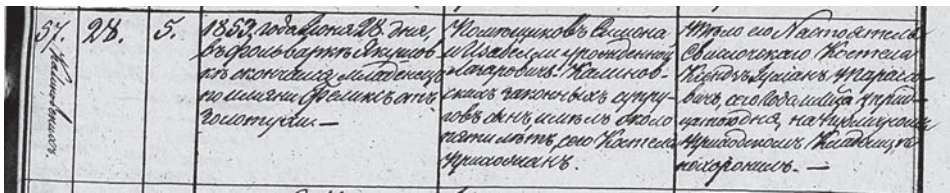 57. 28. 5.
Калиновских.
1853 года Июня 28 дня,
въ фольварке Якушов-
ке скончался младенец
по имяни Феликс отъ
золотухи. —
Помещиковъ Симона
и Изабелли урожденной
Лазаровичъ Калинов-
скихъ законныхъ супру-
говъ сынъ имелъ около
пяти летъ, сего Костела
прихожанъ.
тело его Настоятель
Свислочского Костела
Ксендзъ
сего года месяца
дня, на
приходскомъ Кладбище
похоронилъ. —